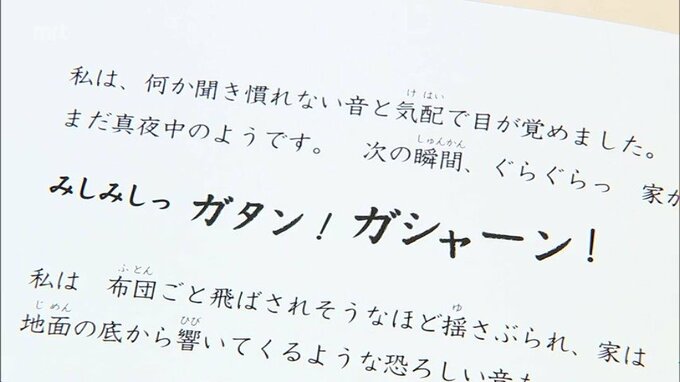 mrt
私は、何か聞き慣れない音と気配で目が覚めました。
まだ真夜中のようです。 次の瞬間、ぐらぐらっ 家が
みしみしっ ガタン! ガシャーン!
私は 布団ごと飛ばされそうなほど揺さぶられ、家は
地面の底から響いてくるような恐ろしい音